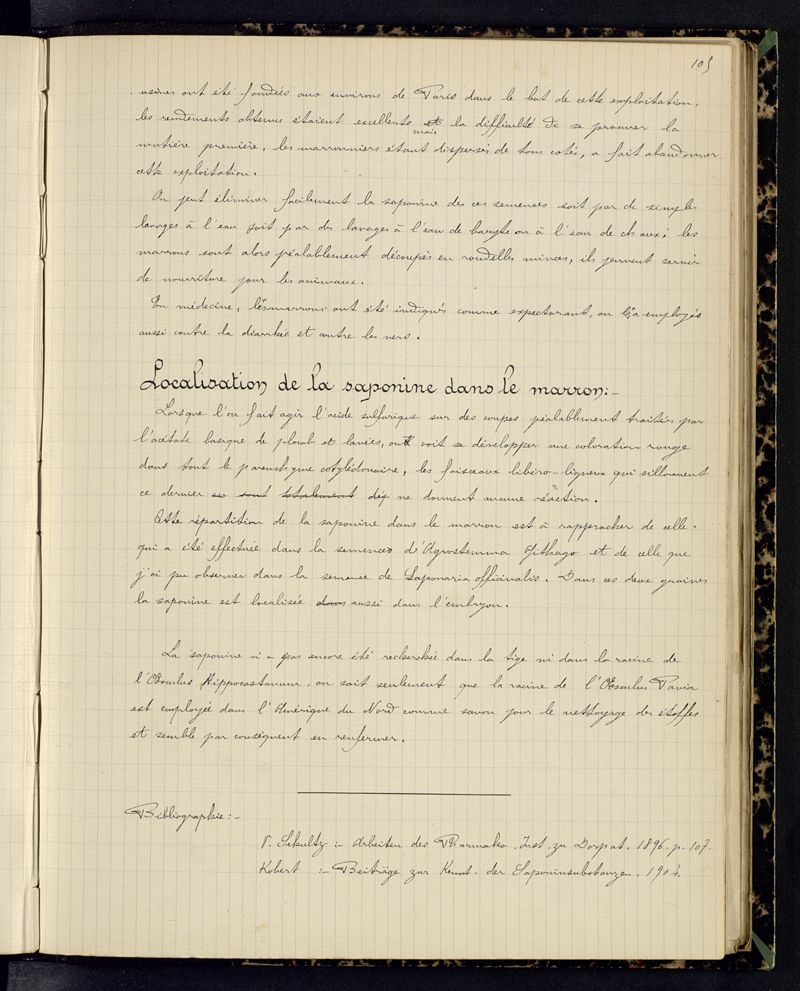 105
usines ont été fondées aux environs de Paris dans le but de cette exploitation,
les rendements obtenus étaient excellents et mais la difficulté de se procurer la
matière première, les marronniers étant dispersés de tous cotés, a fait abandonner
cette exploitation.
On peut éliminer facilement la saponine des ces semences soit par de simples
lavages à l'eau soit par des lavages à l'eau de baryte ou à l'eau de chaux; les
marrons sont alors préalablement découpés en rondelles minces, ils peuvent servir
de nourriture pour les animaux.
En médecine, les marrons ont été indiqués comme expectorant, on les a employés
aussi contre la diarrhée et contre les vers.
Localisation de la saponine dans le marron:-
Lorsque l'on fait agir l'acide sulfurique sur des coupes préalablement traitées par
l'acétate basique de plomb et lavées, on voit se développer une coloration rouge
dans tout le parenchyme cotylédonaire, les faisceaux libéro-ligneux qui sillonnent
ce dernier en sont totalement dép ne donnent aucune réaction.
Cette répartition de la saponine dans le marron est à rapprocher de celle
qui a été effectuée dans la semence d'Agrostemma Githago et de celle que
j'ai pu observer dans la semence de Saponaria officinalis. Dans ces deux graines
la saponine est localisée dans aussi dans l'embryon.
La saponine n'a pas encore été recherchée dans la tige ni dans la racine de
l'Œsculus Hippocastanum, on sait seulement que la racine de l'Œsculus Pavia
est employée dans l'Amérique du Nord comme savon pour le nettoyage des étoffes
et semble par conséquent en renfermer.
Bibliographie:-
V. Schultz :- Arbeiten des Pharmako. Inst. zu Dorpat. 1896. p. 107.
Kobert :- Beiträge zur Kennt. der Saponinsubstanzen. 1904.